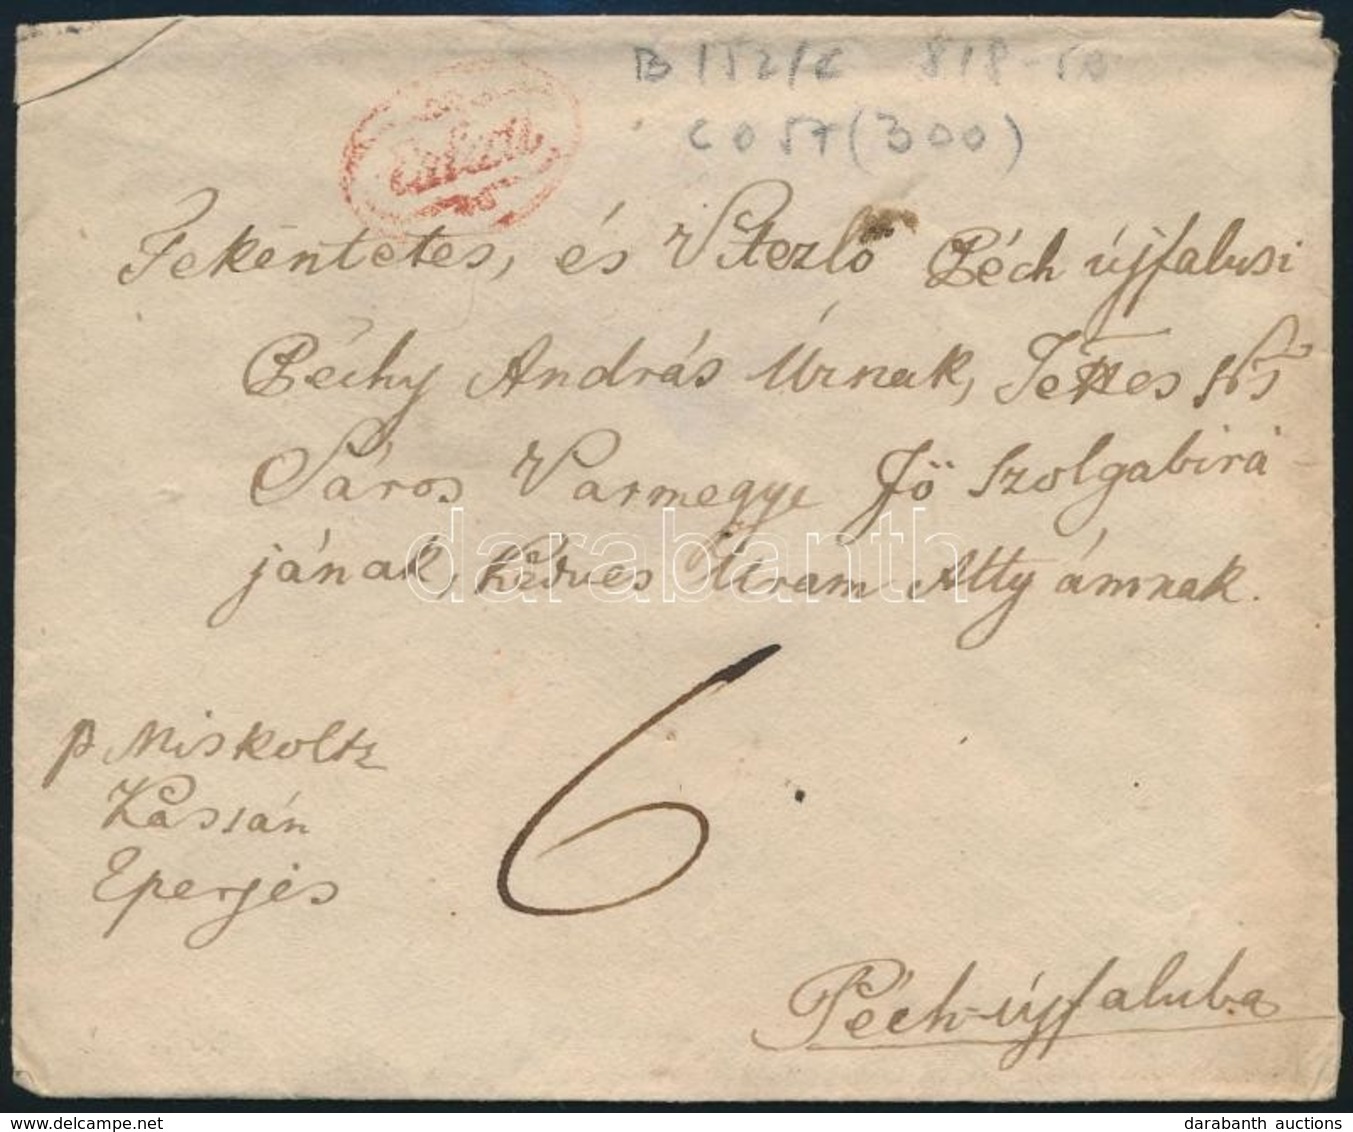 B 152/c 818-50
COST (300)
Tekéntetes, és Vitezlő Péch újfalusi
Péchy András Úrnak, Tettes Ns
Sáros Varmegye Fő Szolgabirá
jának, kedves Uram Attyámnak.
p Miskoltz
Kassán
Eperjes
6
Péch-újfaluba
darabanth
darabanth auctions